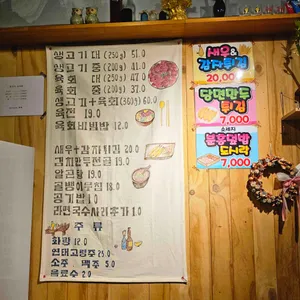 생고기 대 (250g) 51.0
생고기 중 (200g) 41.0
육회 대 (250g) 47.0
육회 중 (200g) 37.0
생고기+육회 (360g) 60.0
육전 19.0
육회비빔밥 12.0
새우+감자튀김 20.0
김치만두전골 19.0
알곤탕 19.0
골뱅이무침 18.0
공기밥 1.0
라면국수사리추가 1.0
주류
화랑 12.0
연태고량주 25.0
소주 맥주 5.0
음료수 2.0
새우&
감자튀김
20,000
당면만두
튀김
7,000
소세지
분홍덮밥
도시락
7,000